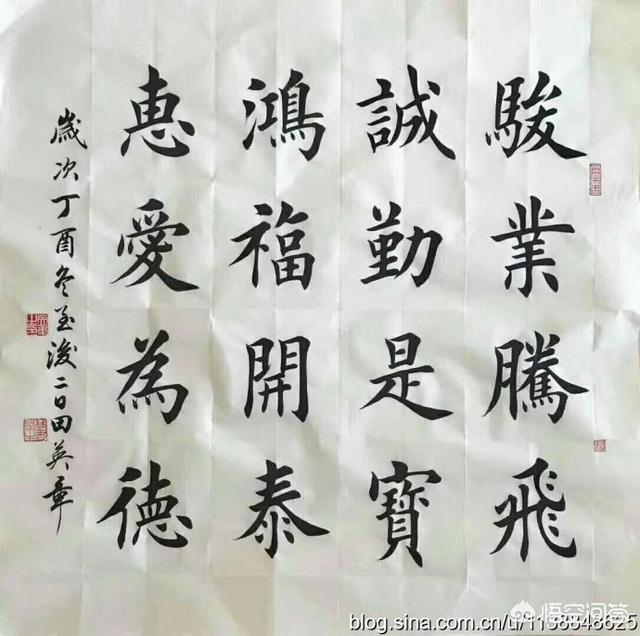 駿業騰飛
誠勤是寶
鴻福開泰
惠愛為德
歲次丁酉冬至後二日田英章
悟空问答
blog.sina.com.cn/u/1138548625